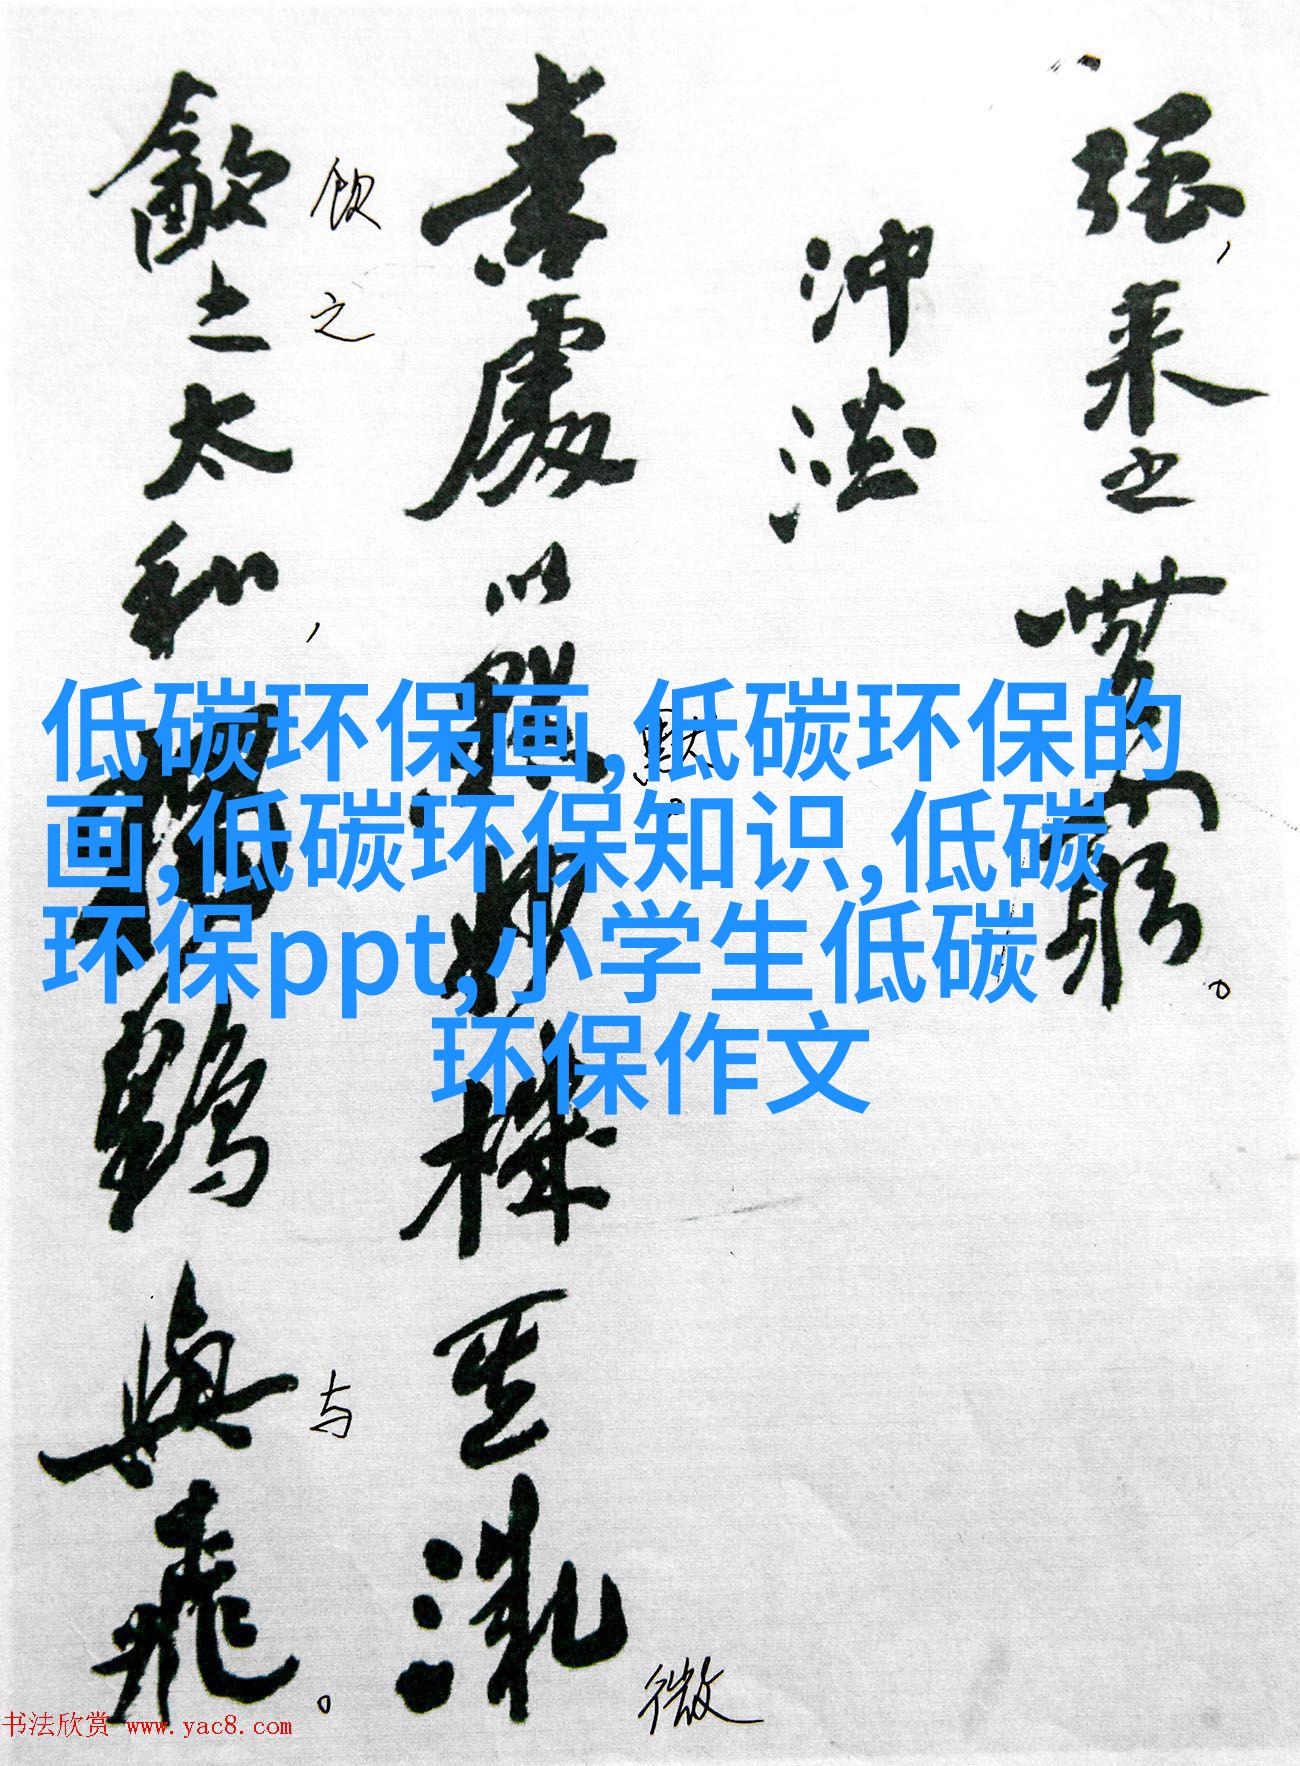 强，来之無窮。
冲澹
素處以默。妙機其微
默
微
飲之太和，獨鶴與飛。
饮之
与
低碳环保画,低碳环保的
画,低碳环保知识,低碳
环保ppt,小学生低碳
环保作文
书法欣赏 www.yac8.com